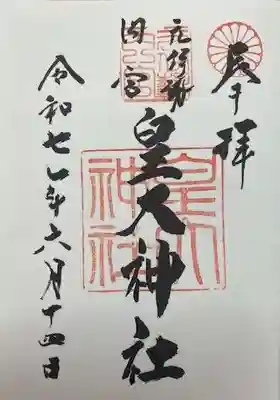 奉拝
元伊勢
内宮
皇大神社
令和七年六月十四日
皇大
神社